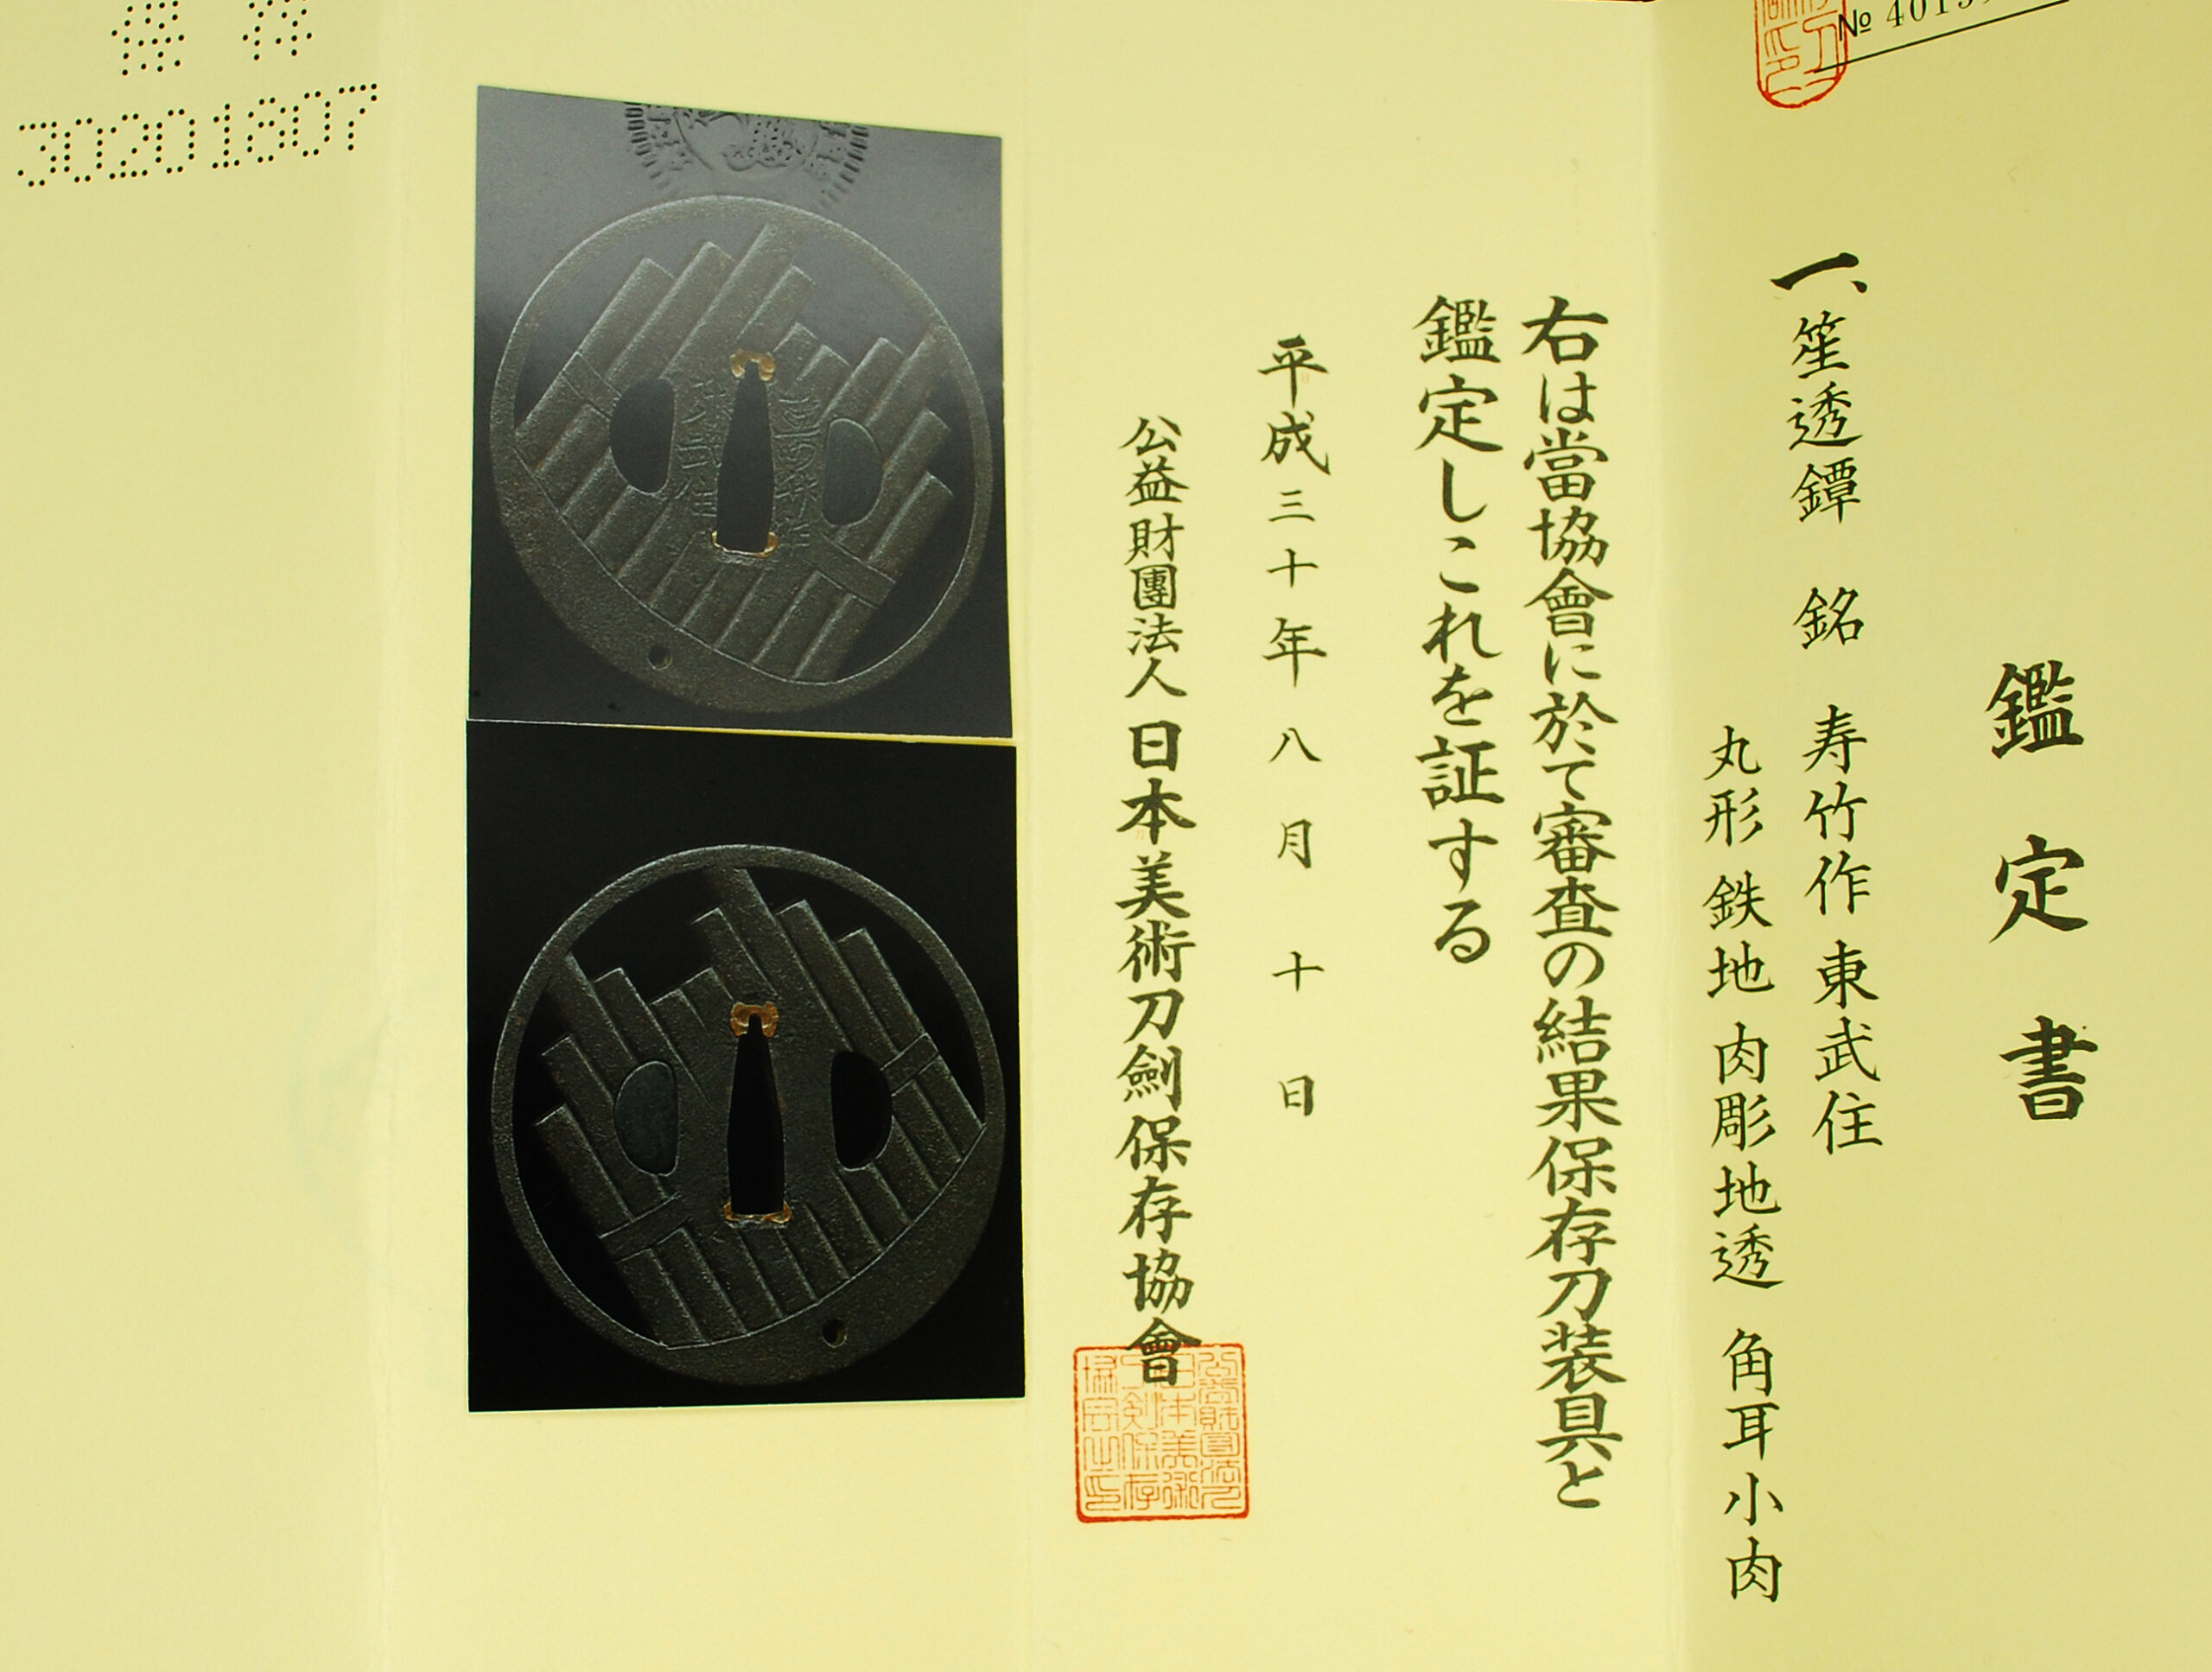 № 4015
鑑定書
一、笙透鐔 銘 寿竹作 東武住
丸形 鉄地 肉彫地透 角耳小肉
右は當協會に於て審査の結果保存刀装具と
鑑定しこれを証する
平成三十年八月十日
公益財團法人日本美術刀劍保存協會
保存
30201807